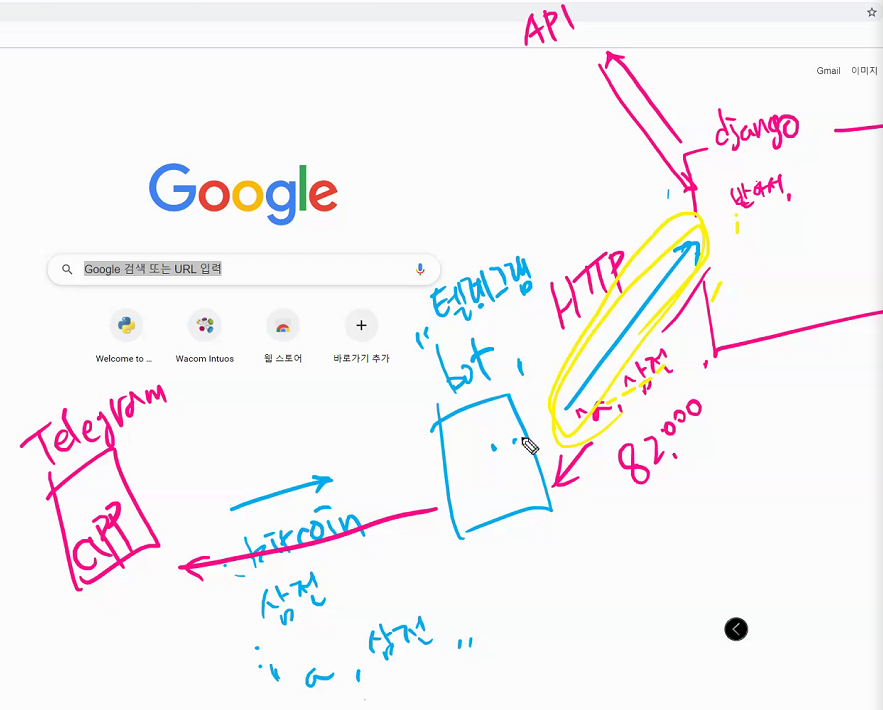 API
Gmail 이미지
django
받아서,
Google
HTTP
Google 검색 또는 URL 입력
텔레그램
"bot,
Welcome to ...
Wacom Intuos
웹 스토어
바로가기 추가
삼전
82,000
Telegram
APP
bitcoin
삼전
a, 삼전